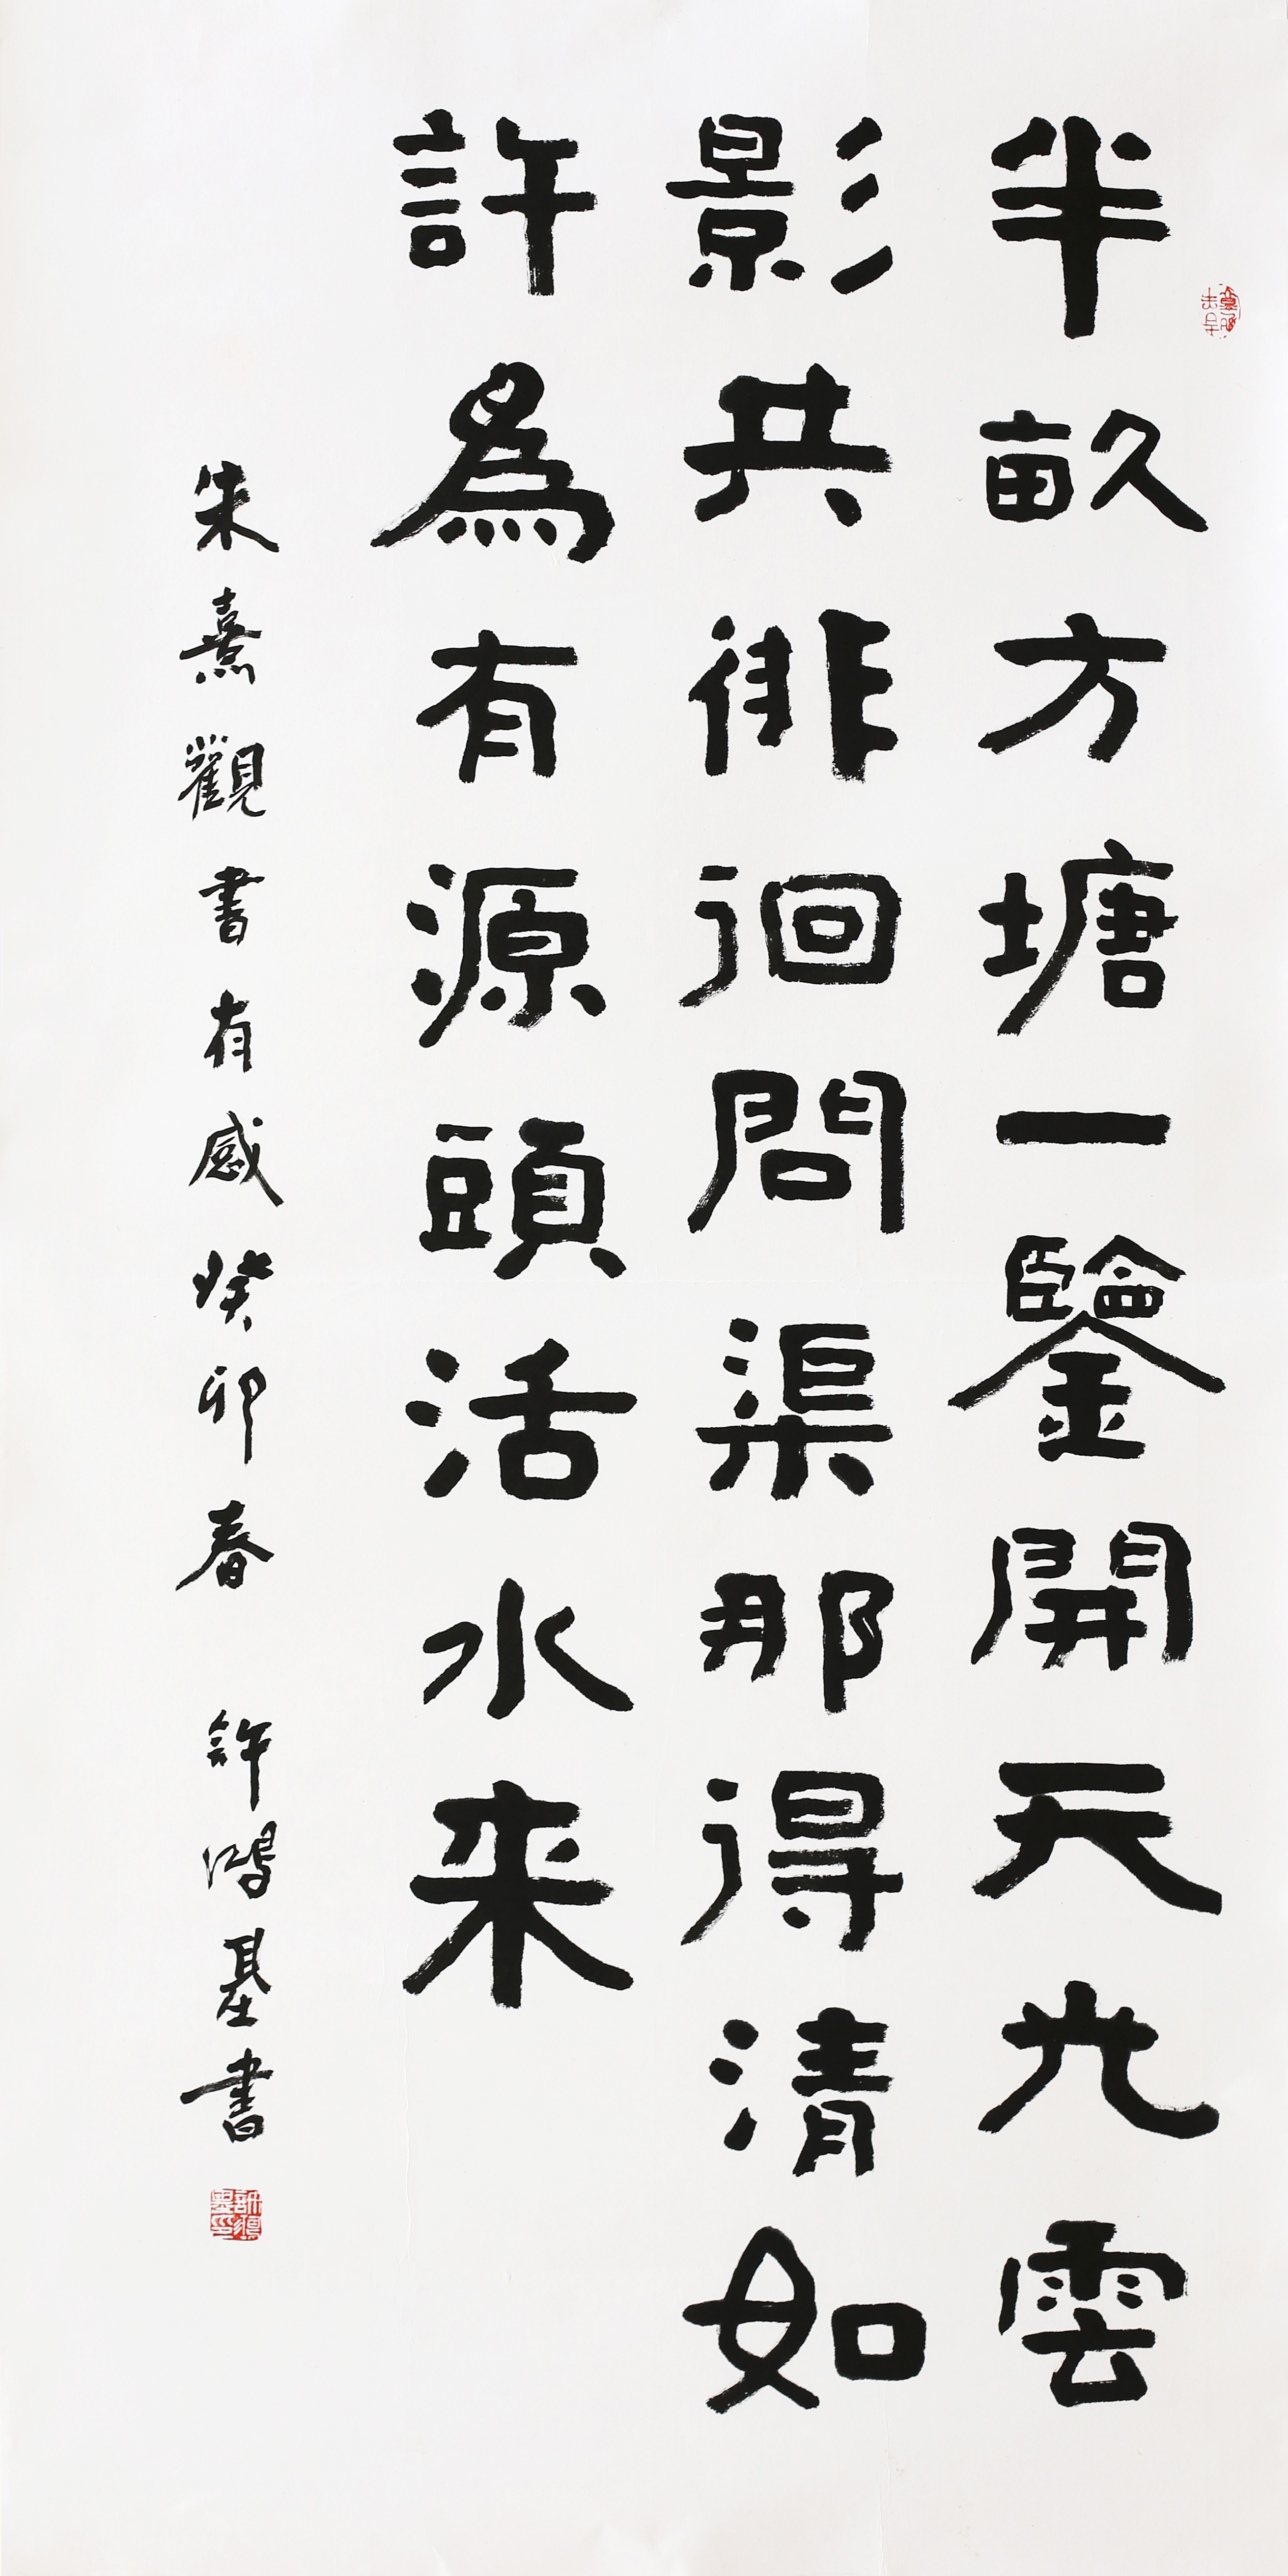 半畝方塘一鑒開天光雲
影共徘徊問渠那得清如
許為有源頭活水来
朱熹觀書有感癸卯春 許鴻基書
許鴻基印